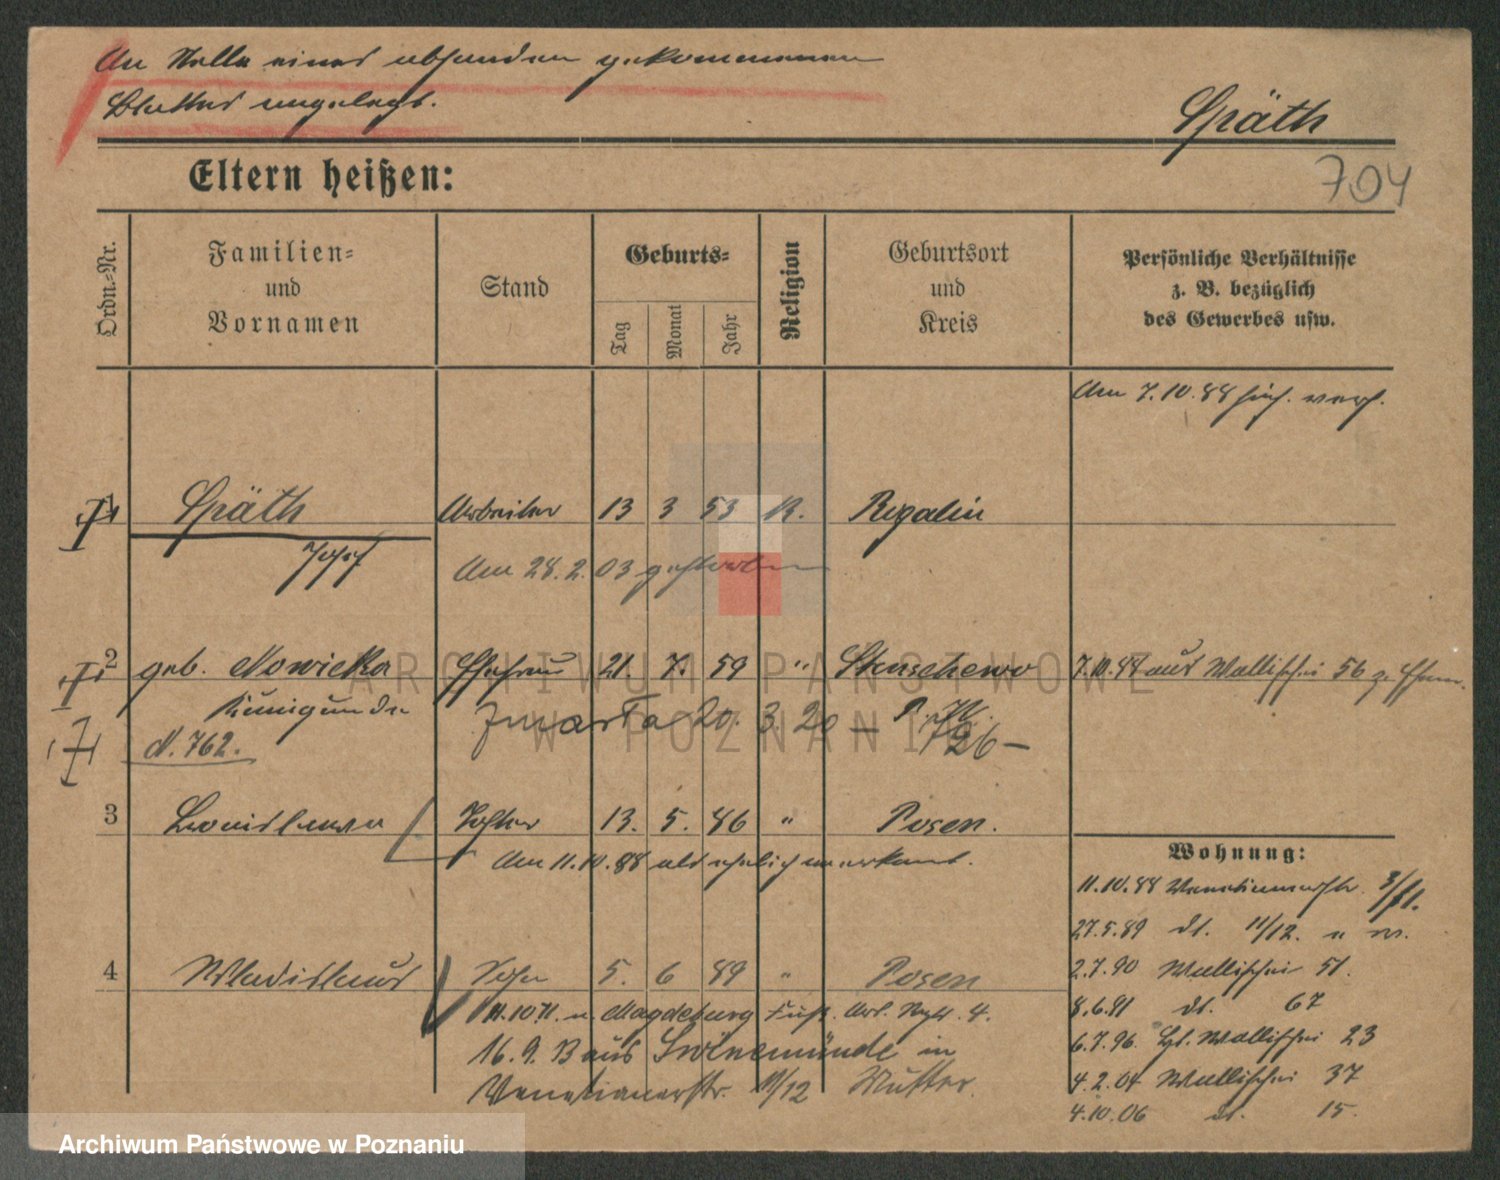 An Stelle eines abhanden gekommenen
Blattes angelegt.
Späth
704
Eltern heißen:
Ordn.-Nr.
Familien-
und
Vornamen
Stand
Geburts-
Tag
Monat
Jahr
Religion
Geburtsort
und
Kreis
Persönliche Verhältnisse
z. B. bezüglich
des Gewerbes usw.
Am 7.10.88 hier verh.
1 Späth Arbeiter 13 3 53 K. Rogalin
Josef
Am 28.2.03 gestorben
2 geb. Nowicka Ehefrau 21. 7. 59 " Stenschewo 7.10.88 aus Wallischei 56 z. Ehem.
Kunigunde
20. 3. 20 —
N. 762.
3 Bronislawa Tochter 13. 5. 86 " Posen.
Am 11.10.88 als ehelich anerkannt.
4 Wladislaus Sohn 5. 6 89 " Posen
n. Magdeburg
16. 9. 13 aus Swinemünde in
Venetianerstr. 11/12 Mutter.
Wohnung:
11.10.88 Venetianerstr.
27.5.89 dt. 11/12.
2.7.90 Wallischei 51.
8.6.91 dt. 67
6.7.96 Wallischei 23
4.2.04 Wallischei 37
4.10.06 dt. 15.
ARCHIWUM PAŃSTWOWE
W POZNANIU
Archiwum Państwowe w Poznaniu